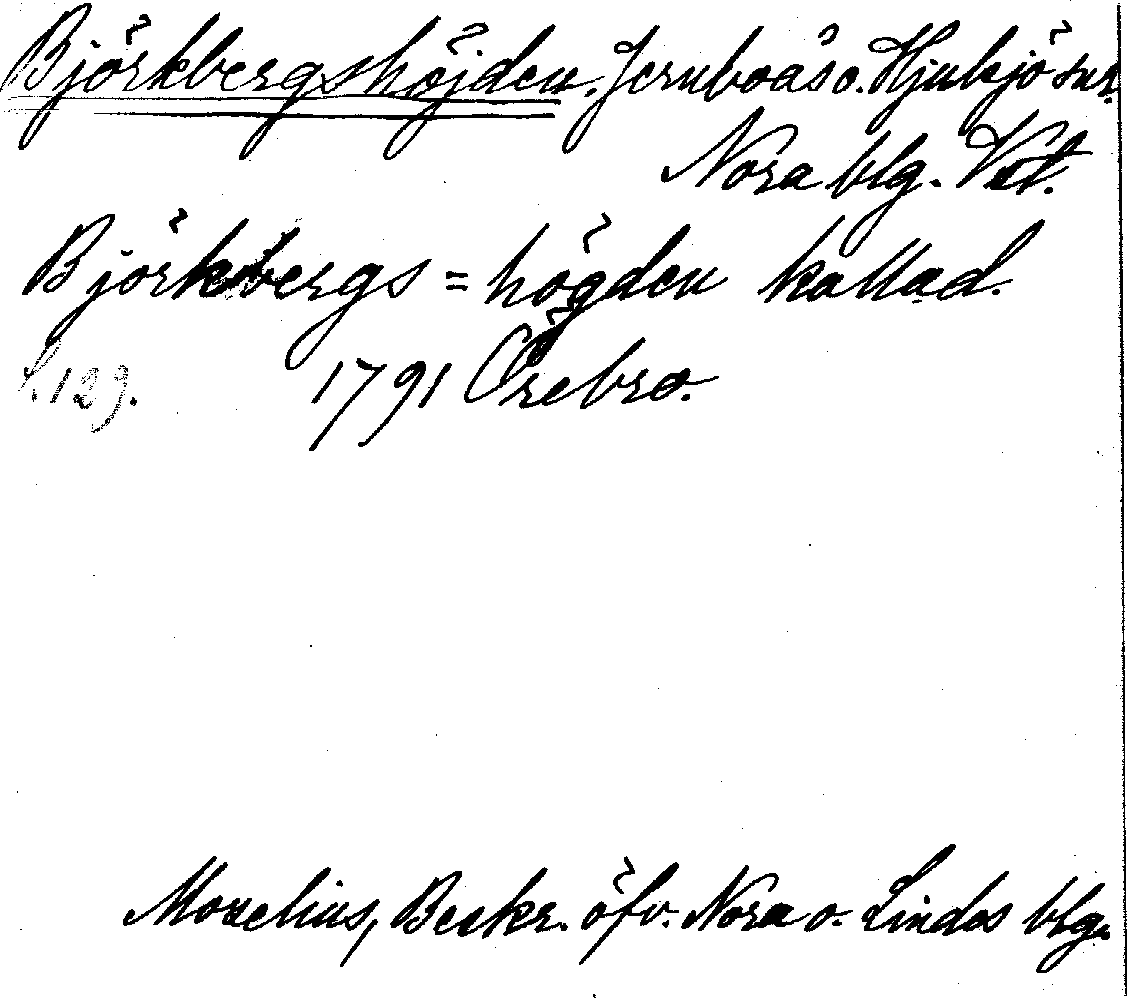 Björkbergshöjden. Jernboås o. Hjulsjö snr.
Nora blg. Vstl.
Björkbergs = högden kallad.
s. 129. 1791 Örebro.
Morelius, Beskr. öfv. Nora o. Lindes blg.